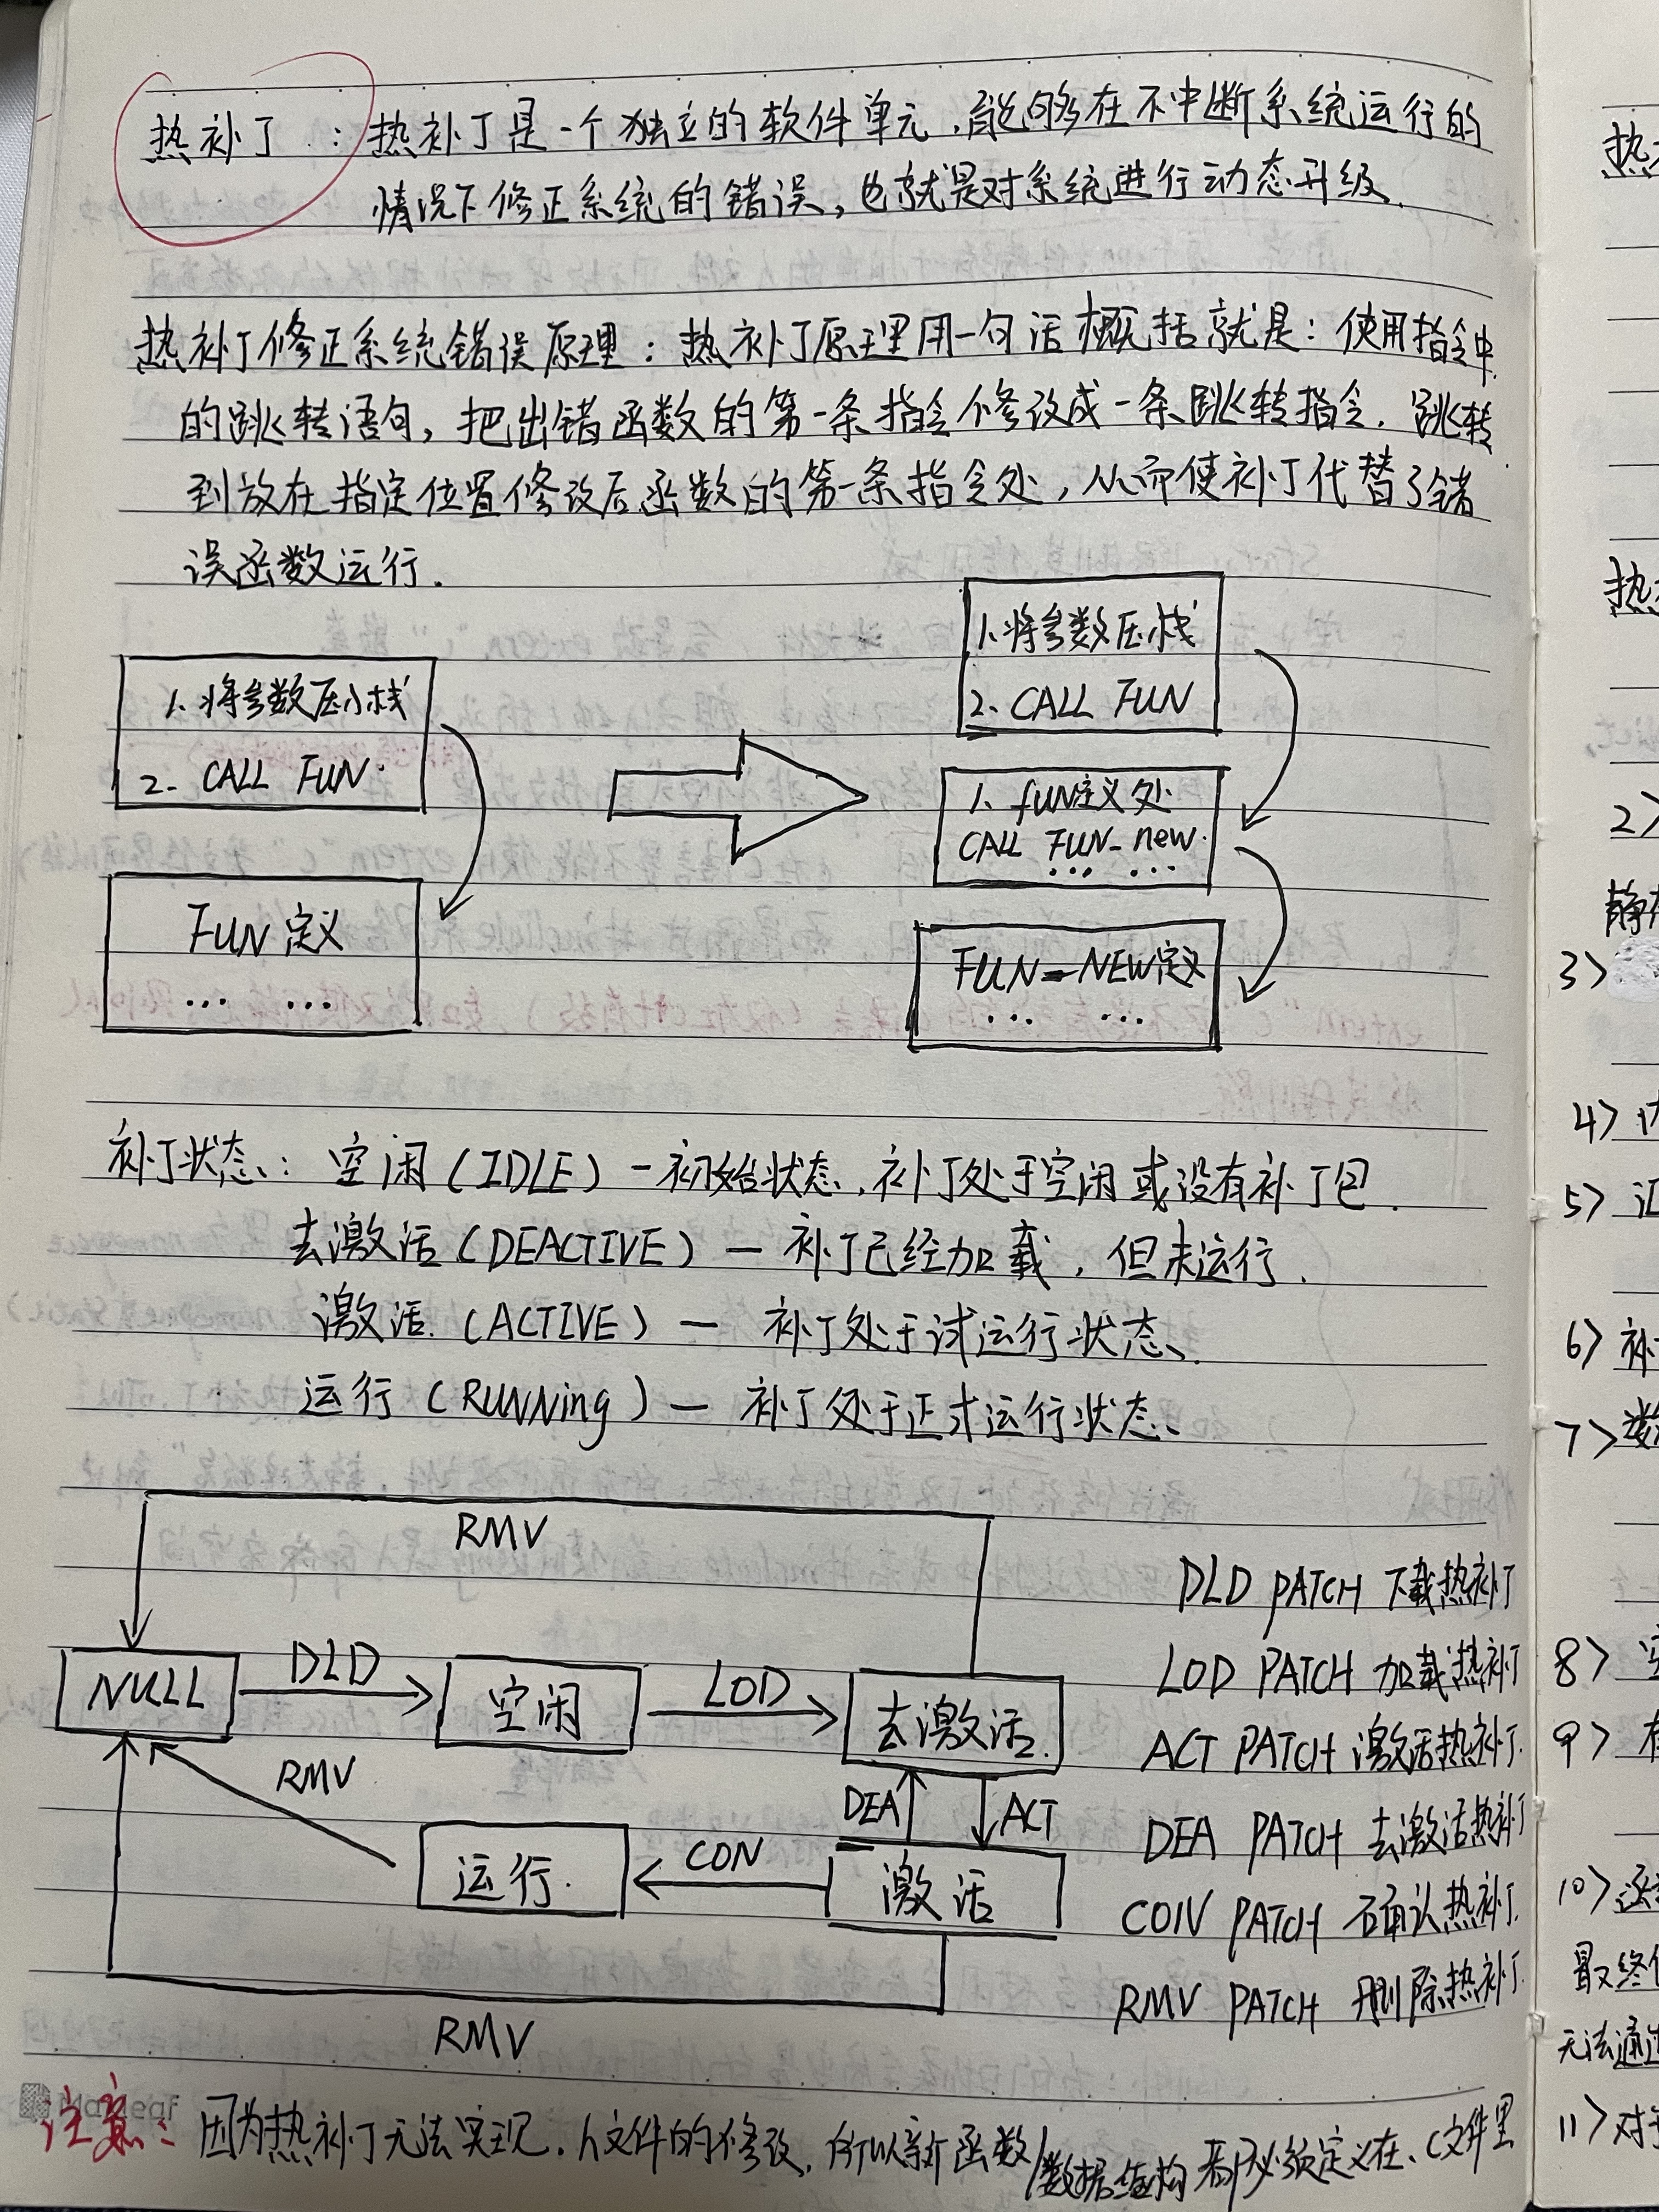 热补丁：热补丁是一个独立的软件单元，能够在不中断系统运行的
情况下修正系统的错误，也就是对系统进行动态升级.
热补丁修正系统错误原理：热补丁原理用一句话概括就是：使用指令中
的跳转语句，把出错函数的第一条指令修改成一条跳转指令，跳转
到放在指定位置修改后函数的第一条指令处，从而使补丁代替了错
误函数运行.
1. 将参数压小栈
2. CALL FUN.
FUN 定义
... ...
1. 将参数压栈
2. CALL FUN
1. fUN定义处
CALL FUN_new.
... ...
FUN_NEW定义
... ...
补丁状态：空闲（IDLE）-初始状态，补丁处于空闲或没有补丁包.
去激活（DEACTIVE）— 补丁已经加载，但未运行.
激活.（ACTIVE）— 补丁处于试运行状态.
运行（RUNNing）— 补丁处于正式运行状态.
RMV
NULL
DLD
空闲
LOD
去激活.
RMV
DEA
ACT
运行.
CON
激活
RMV
DLD PATCH 下载热补丁
LOD PATCH 加载热补丁
ACT PATCH 激活热补丁.
DEA PATCH 去激活热补丁
CON PATCH 确认热补丁.
RMV PATCH 删除热补丁.
注意：因为热补丁无法实现.h文件的修改，所以新函数/数据结构都必须定义在.c文件里
热
热
2>
3>
4>
5> 汇
6> 补
7> 数
8>
9>
10> 函
最终
无法通过
11> 对